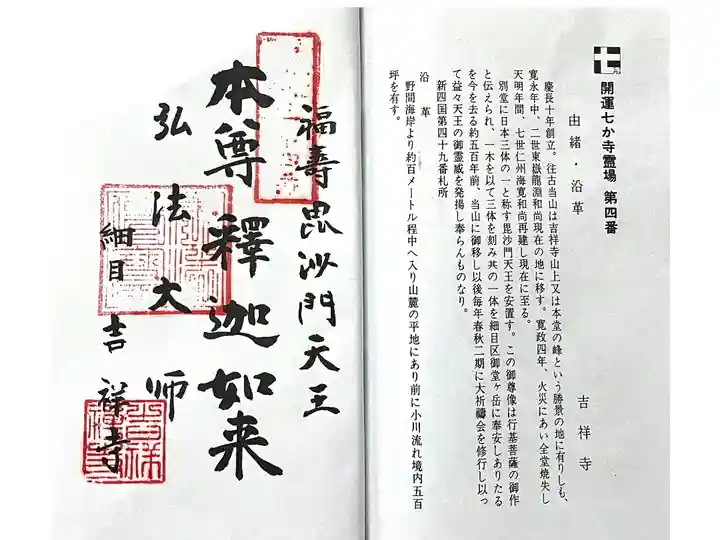 開運七か寺霊場 第四番
由緒・沿革
吉祥寺
慶長十年創立。往古当山は吉祥寺山上又は本堂の峰という勝景の地に有りしも、
寛永年中、二世東嶽龍淵和尚現在の地に移す。寛政四年、火災にあい全堂焼失し
天明年間、七世仁州海寛和尚再建し現在に至る。
別堂に日本三体の一と称す毘沙門天王を安置す。この御尊像は行基菩薩の御作
と伝えられ、一木を以て三体を刻み其の一体を細目区御堂ヶ岳に奉安しありたる
を今を去る約五百年前、当山に御移し以後毎年春秋二期に大祈禱会を修行し以っ
て益々天王の御霊威を発揚し奉らんものなり。
新四国第四十九番札所
沿革
野間海岸より約百メートル程中へ入り山麓の平地にあり前に小川流れ境内五百
坪を有す。
福壽毘沙門天王
本尊釋迦如来
弘法大師
細目吉祥寺